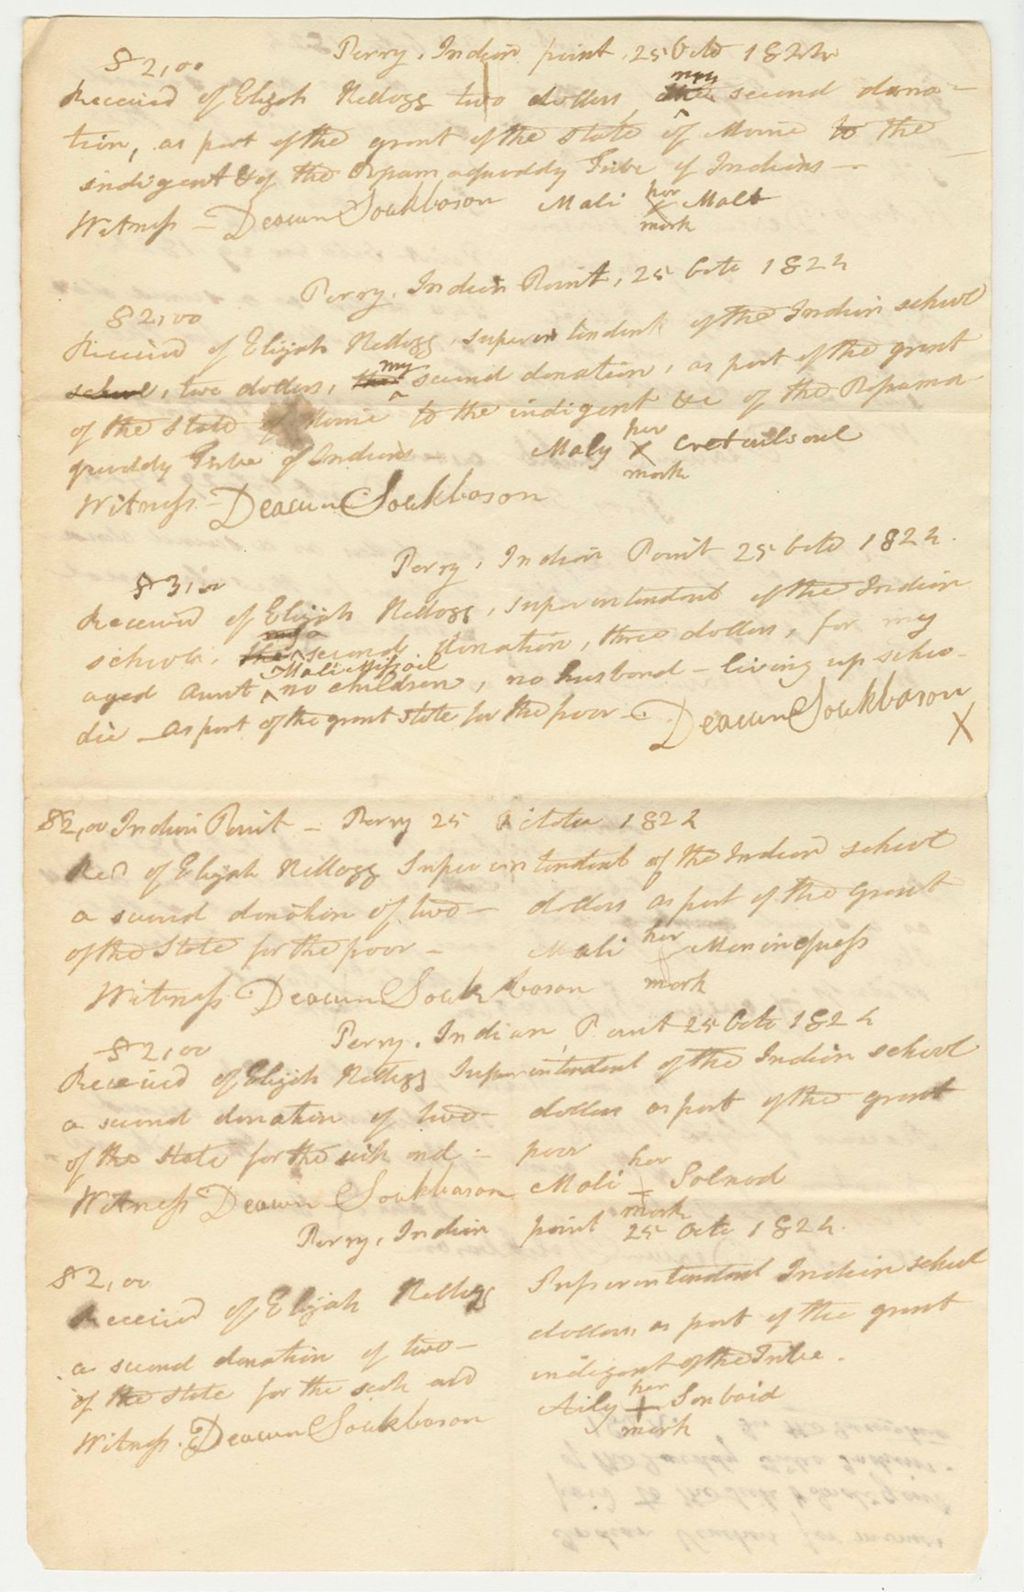 Perry, Indian point, 25 Octo 1824
$2,00
Received of Elijah Kellogg two dollars, my second dona-
tion, as part of the grant of the State of Maine to the
indigent &c of the Opamaquoddy Tribe of Indians —
Witness — Deacun Sockbason Mali her X mark Malt
Perry, Indian Point, 25 Octo 1824
$2,00
Received of Elijah Kellogg, superintendent of the Indian school
school, two dollars, my second donation, as part of the grant
of the State of Maine to the indigent &c of the Opama
quoddy Tribe of Indians —
Maly her X mark
Witness — Deacun Sockbason
Perry, Indian Point 25 Octo 1824.
$3,00
Received of Elijah Kellogg, superintendent of the Indian
school, my second donation, three dollars, for my
aged aunt Mali no children, no husband — living up
die — as part of the grant State for the poor — Deacun Sockbason
X
$2,00 Indian Point — Perry 25 October 1824
Recd of Elijah Kellogg Superintendent of the Indian school
a second donation of two — dollars as part of the grant
of the State for the poor — Mali her mark
Witness Deacun Sockbason
Perry, Indian Point 25 Octo 1824
$2,00
Received of Elijah Kellogg Superintendent of the Indian school
a second donation of two — dollars as part of the grant
of the State for the sick and — poor
Witness Deacun Sockbason Mali her + mark Solnod
Perry, Indian point 25 Octo 1824.
$2,00
Received of Elijah Kellogg Superintendent Indian school
a second donation of two — dollars, as part of the grant
of the State for the sick and indigent of the Tribe.
Witness. Deacun Sockbason her + mark